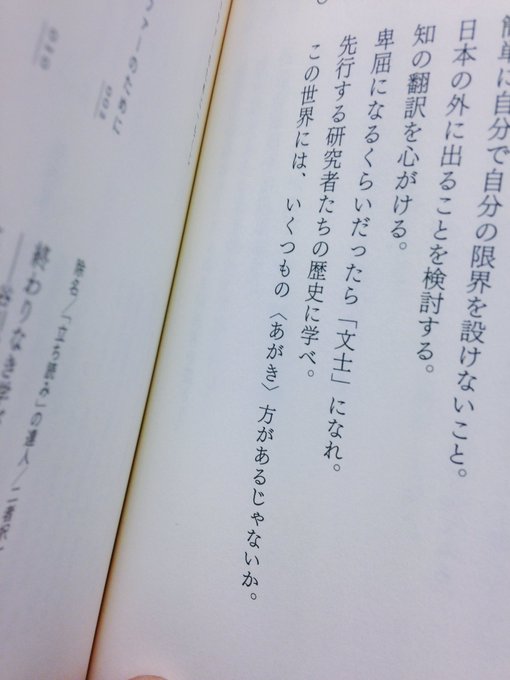 簡単に自分で自分の限界を設けないこと。
日本の外に出ることを検討する。
知の翻訳を心がける。
卑屈になるくらいだったら「文士」になれ。
先行する研究者たちの歴史に学べ。
この世界には、いくつもの〈あがき〉方があるじゃないか。
ァーのために
除名/「立ち読み」の達人/二者択
終わりなき学